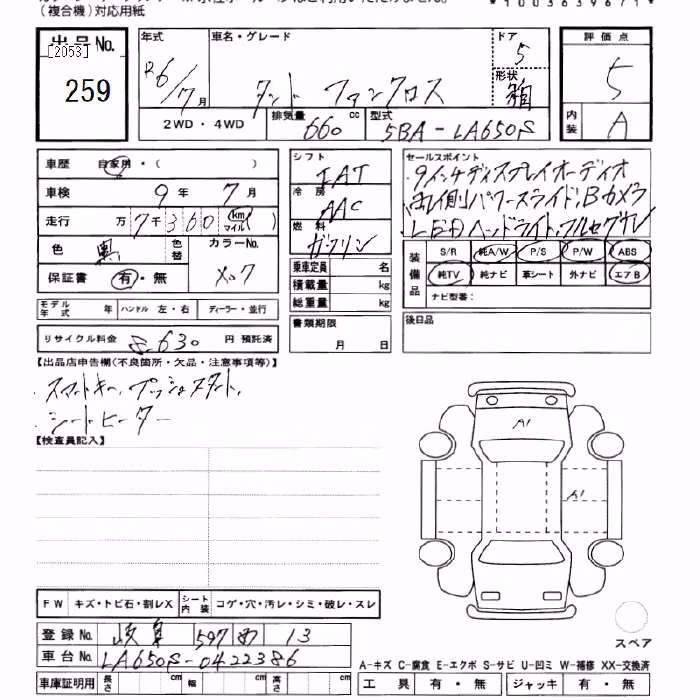 (複合機)対応用紙
*1003639671*
出品No.
[2053]
259
年式
R6/7月
車名・グレード
タント ファンクロス
ドア
5
形状
箱
2WD・4WD
排気量
660 cc
型式
5BA-LA650S
評価点
5
内装
A
車歴 自家用・( )
車検 9年7月
走行 万7千360 km マイル
色 黒 色替 カラーNo.
保証書 有・無 X07
モデル年式 ハンドル 左・右 ディーラー・並行
リサイクル料金 8.630 円 預託済
シフト
IAT
冷房
AAC
燃料
ガソリン
乗車定員 名
積載量 kg
総重量 kg
書類期限
月 日
セールスポイント
9インチディスプレイオーディオ
両側パワースライド、Bカメラ
LEDヘッドライト、フルセグTV
装備品
S/R 純A/W P/S P/W ABS
純TV 純ナビ 革シート 外ナビ エアB
ナビ型番:
後日品
【出品店申告欄(不良箇所・欠品・注意事項等)】
スマートキー、プッシュスタート、
シートヒーター
【検査員記入】
A1
A1
FW キズ・トビ石・割レX シート内装 コゲ・穴・汚レ・シミ・破レ・スレ
登録No. 岐阜 597 め 13
車台No. LA650S-0422386
車庫証明用 長さ cm 幅 cm 高さ cm
スペア
A-キズ C-腐食 E-エクボ S-サビ U-凹ミ W-補修 XX-交換済
工具 有・無 ジャッキ 有・無